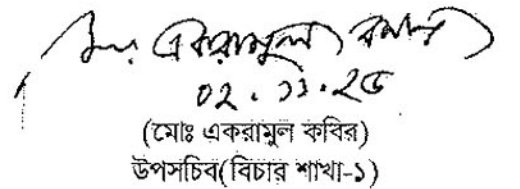 মোঃ একরামুল কবির
০২.১১.২৫
(মোঃ একরামুল কবির)
উপসচিব(বিচার শাখা-১)